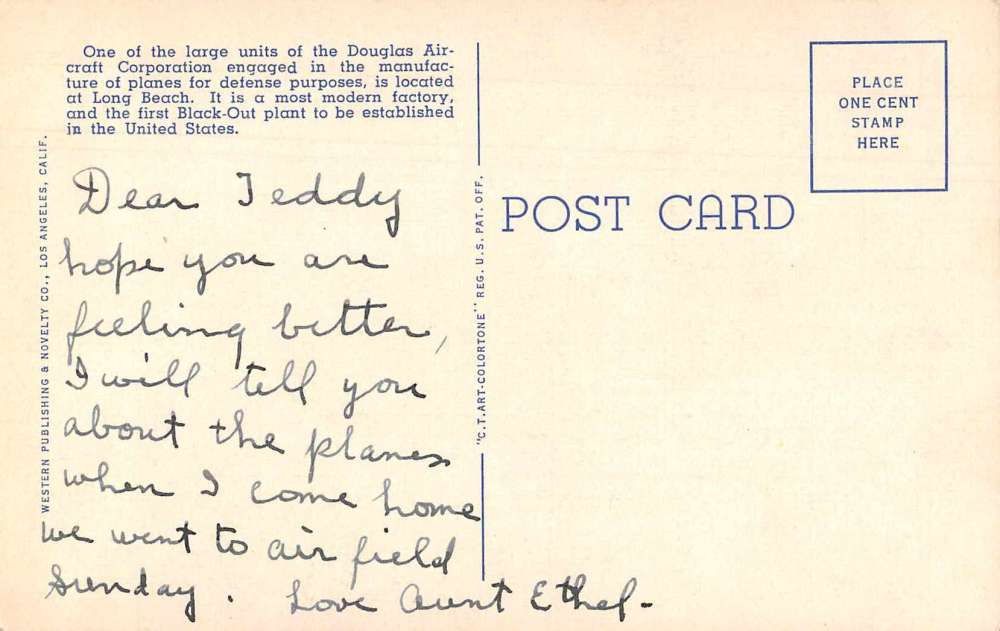 One of the large units of the Douglas Air-
craft Corporation engaged in the manufac-
ture of planes for defense purposes, is located
at Long Beach. It is a most modern factory,
and the first Black-Out plant to be established
in the United States.
WESTERN PUBLISHING & NOVELTY CO., LOS ANGELES, CALIF.
Dear Teddy
hope you are
feeling better,
I will tell you
about the planes
when I come home
we went to air field
Sunday. Love Aunt Ethel-
"C.T. ART-COLORTONE" REG. U.S. PAT. OFF.
POST CARD
PLACE
ONE CENT
STAMP
HERE